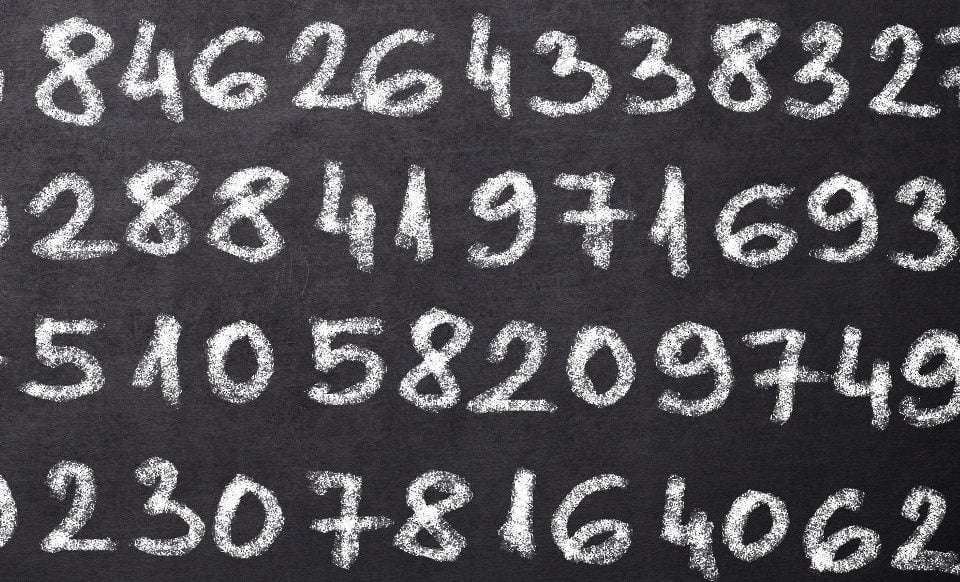 84626433832
28841971693
51058209749
23078164062